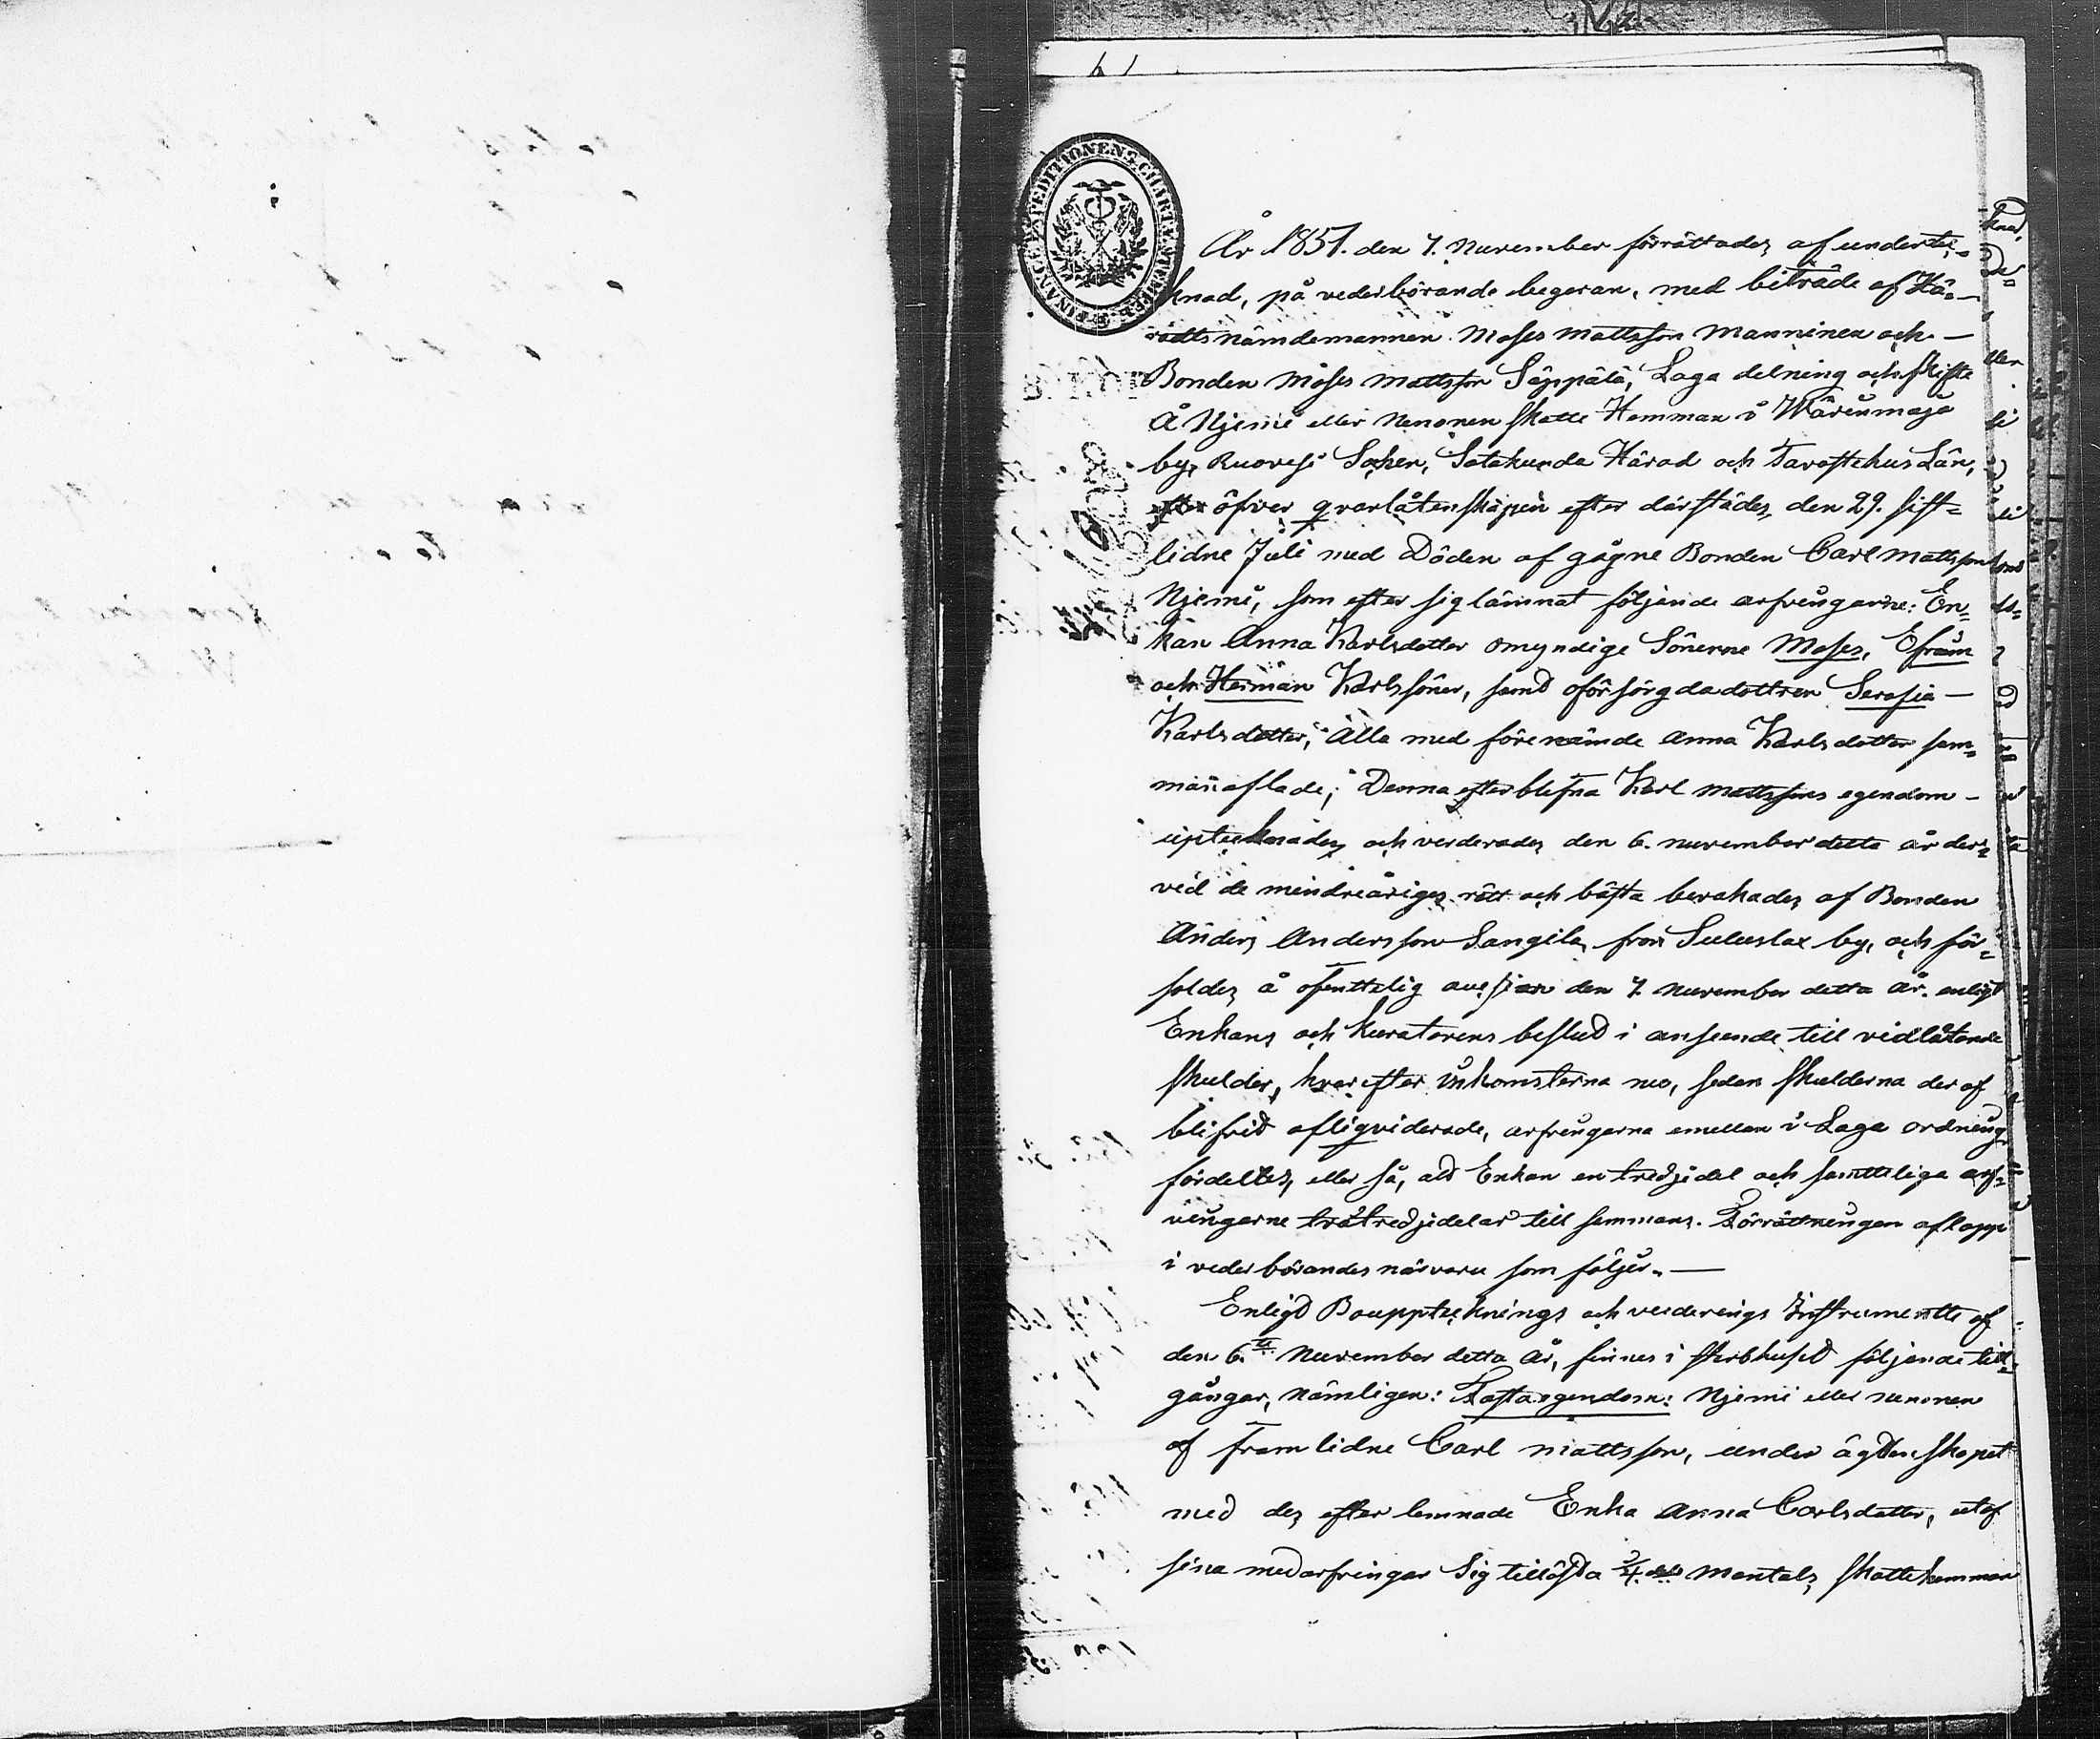 År 1851. den 7. November förrättades af underteʒ
knad, på vederbörande begeran, med biträde af Hä-
radtsnämdemannen Moses Mattsson Manninen och
Bonden Moses Mattsson Säppälä, Laga delning och skifte
Å Njemi eller Nenonen skatte Hemman i Wäärinmaja
by, Ruovesi Soken, Satakunda Härad och Tavastehus Län,
efter öfver qvarlåtenskapen efter därstädes, den 29. sist-
lidne Juli med Döden afgågne Bonden Carl Mattsson
Njemi, som efter sig lämnat följande arfvingarne: En-
kan Anna Karlsdotter omyndige Sönerne Moses, Efraim
och Heiman Karlssöner, samt oförsörgda dottren Serafia
Karlsdotter, Alla med förenämde Anna Karlsdotter sam-
manaflade; Denna efterblefna Karl Mattssons egendom
upteknades och verderades den 6. november detta år der-
vid de mindreåriges rätt och bästa bevakades af Bonden
Anders Andersson Sangila från by, och för-
soldes å ofenttelig auction den 7. november detta år. enligt
Enkans och Kuratorens beslud i anseende till vidlåtande
skulder, hvarefter inkomsterna nu, sedan skulderna deraf
blifvid afliqviderade, arfvingarna emellan i Laga ordning
fördeltes, eller så, att Enkan en tredjedel och samtteliga arf-
vingarne två tredjedelar till sammans. Förrättningen aflopp
i vederbörandes närvaru som följer.
Enligd Bouppteknings och verderings Instrumentte af
den 6.te November detta År, finnes i sterbhused följande till-
gångar, nämligen: Fasta egendom: Njemi eller Nenonen
af framlidne Carl Mattsson, under ägtenskapet
med des efterlemnade Enka Anna Carlsdotter, utaf
sina medarfvingar Sig tillösta Mantals skattehemman